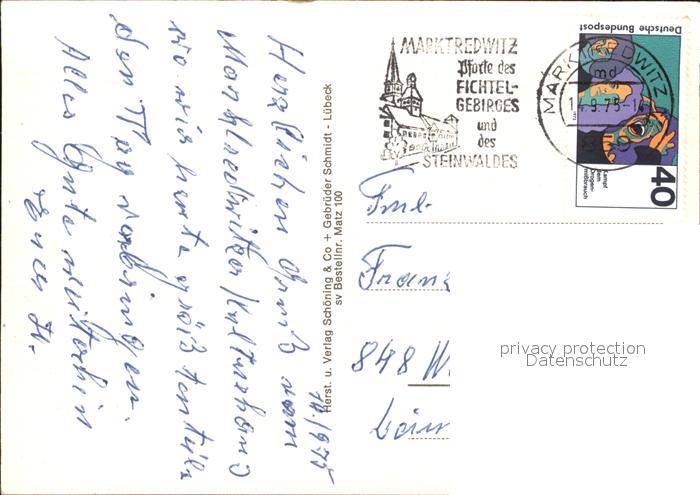 Herzlichen Gruß vom
Marktredwitzer
wo wir heute größtenteils
den Tag verbringen.
Alles Gute weiterhin
Euer H.
Herst. u. Verlag Schöning & Co + Gebrüder Schmidt - Lübeck
sv Bestellnr. Matz 100
MARKTREDWITZ
Pforte des
FICHTEL-
GEBIRGES
und
des
STEINWALDES
MARKTREDWITZ
md
14.9.75-1
Deutsche Bundespost
Kampf
dem
Drogen-
mißbrauch
40
Fam.
Franz
848 W
privacy protection
Datenschutz